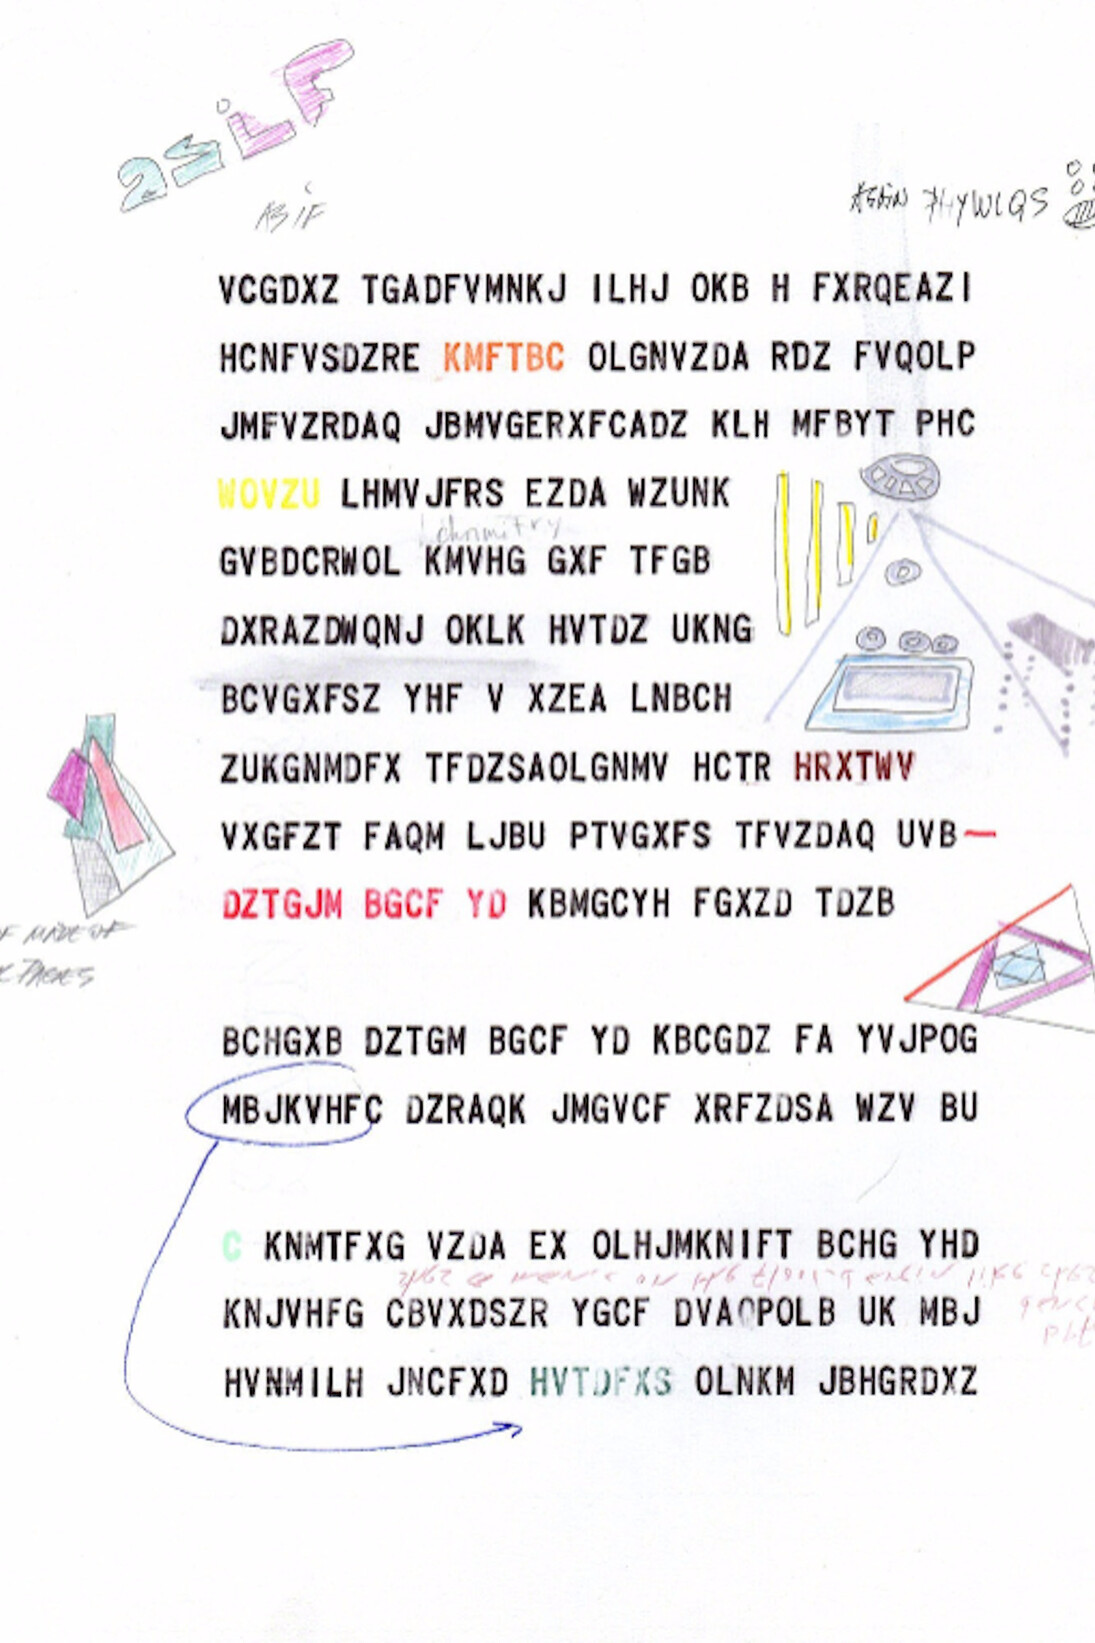 asiF
AS iF
AGAIN PHYWLQS
VCGDXZ TGADFVMNKJ ILHJ OKB H FXRQEAZI
HCNFVSDZRE KMFTBC OLGNVZDA RDZ FVQOLP
JMFVZRDAQ JBMVGERXFCADZ KLH MFBYT PHC
WOVZU LHMVJFRS EZDA WZUNK
GVBDCRWOL KMVHG GXF TFGB
DXRAZDWQNJ OKLK HVTDZ UKNG
BCVGXFSZ YHF V XZEA LNBCH
ZUKGNMDFX TFDZSAOLGNMV HCTR HRXTWV
VXGFZT FAQM LJBU PTVGXFS TFVZDAQ UVB—
DZTGJM BGCF YD KBMGCYH FGXZD TDZB
F MADE OF
BCHGXB DZTGM BGCF YD KBCGDZ FA YVJPOG
MBJKVHFC DZRAQK JMGVCF XRFZDSA WZV BU
C KNMTFXG VZDA EX OLHJMKNIFT BCHG YHD
KNJVHFG CBVXDSZR YGCF DVAQPOLB UK MBJ
HVNMILH JNCFXD HVTDFXS OLNKM JBHGRDXZ